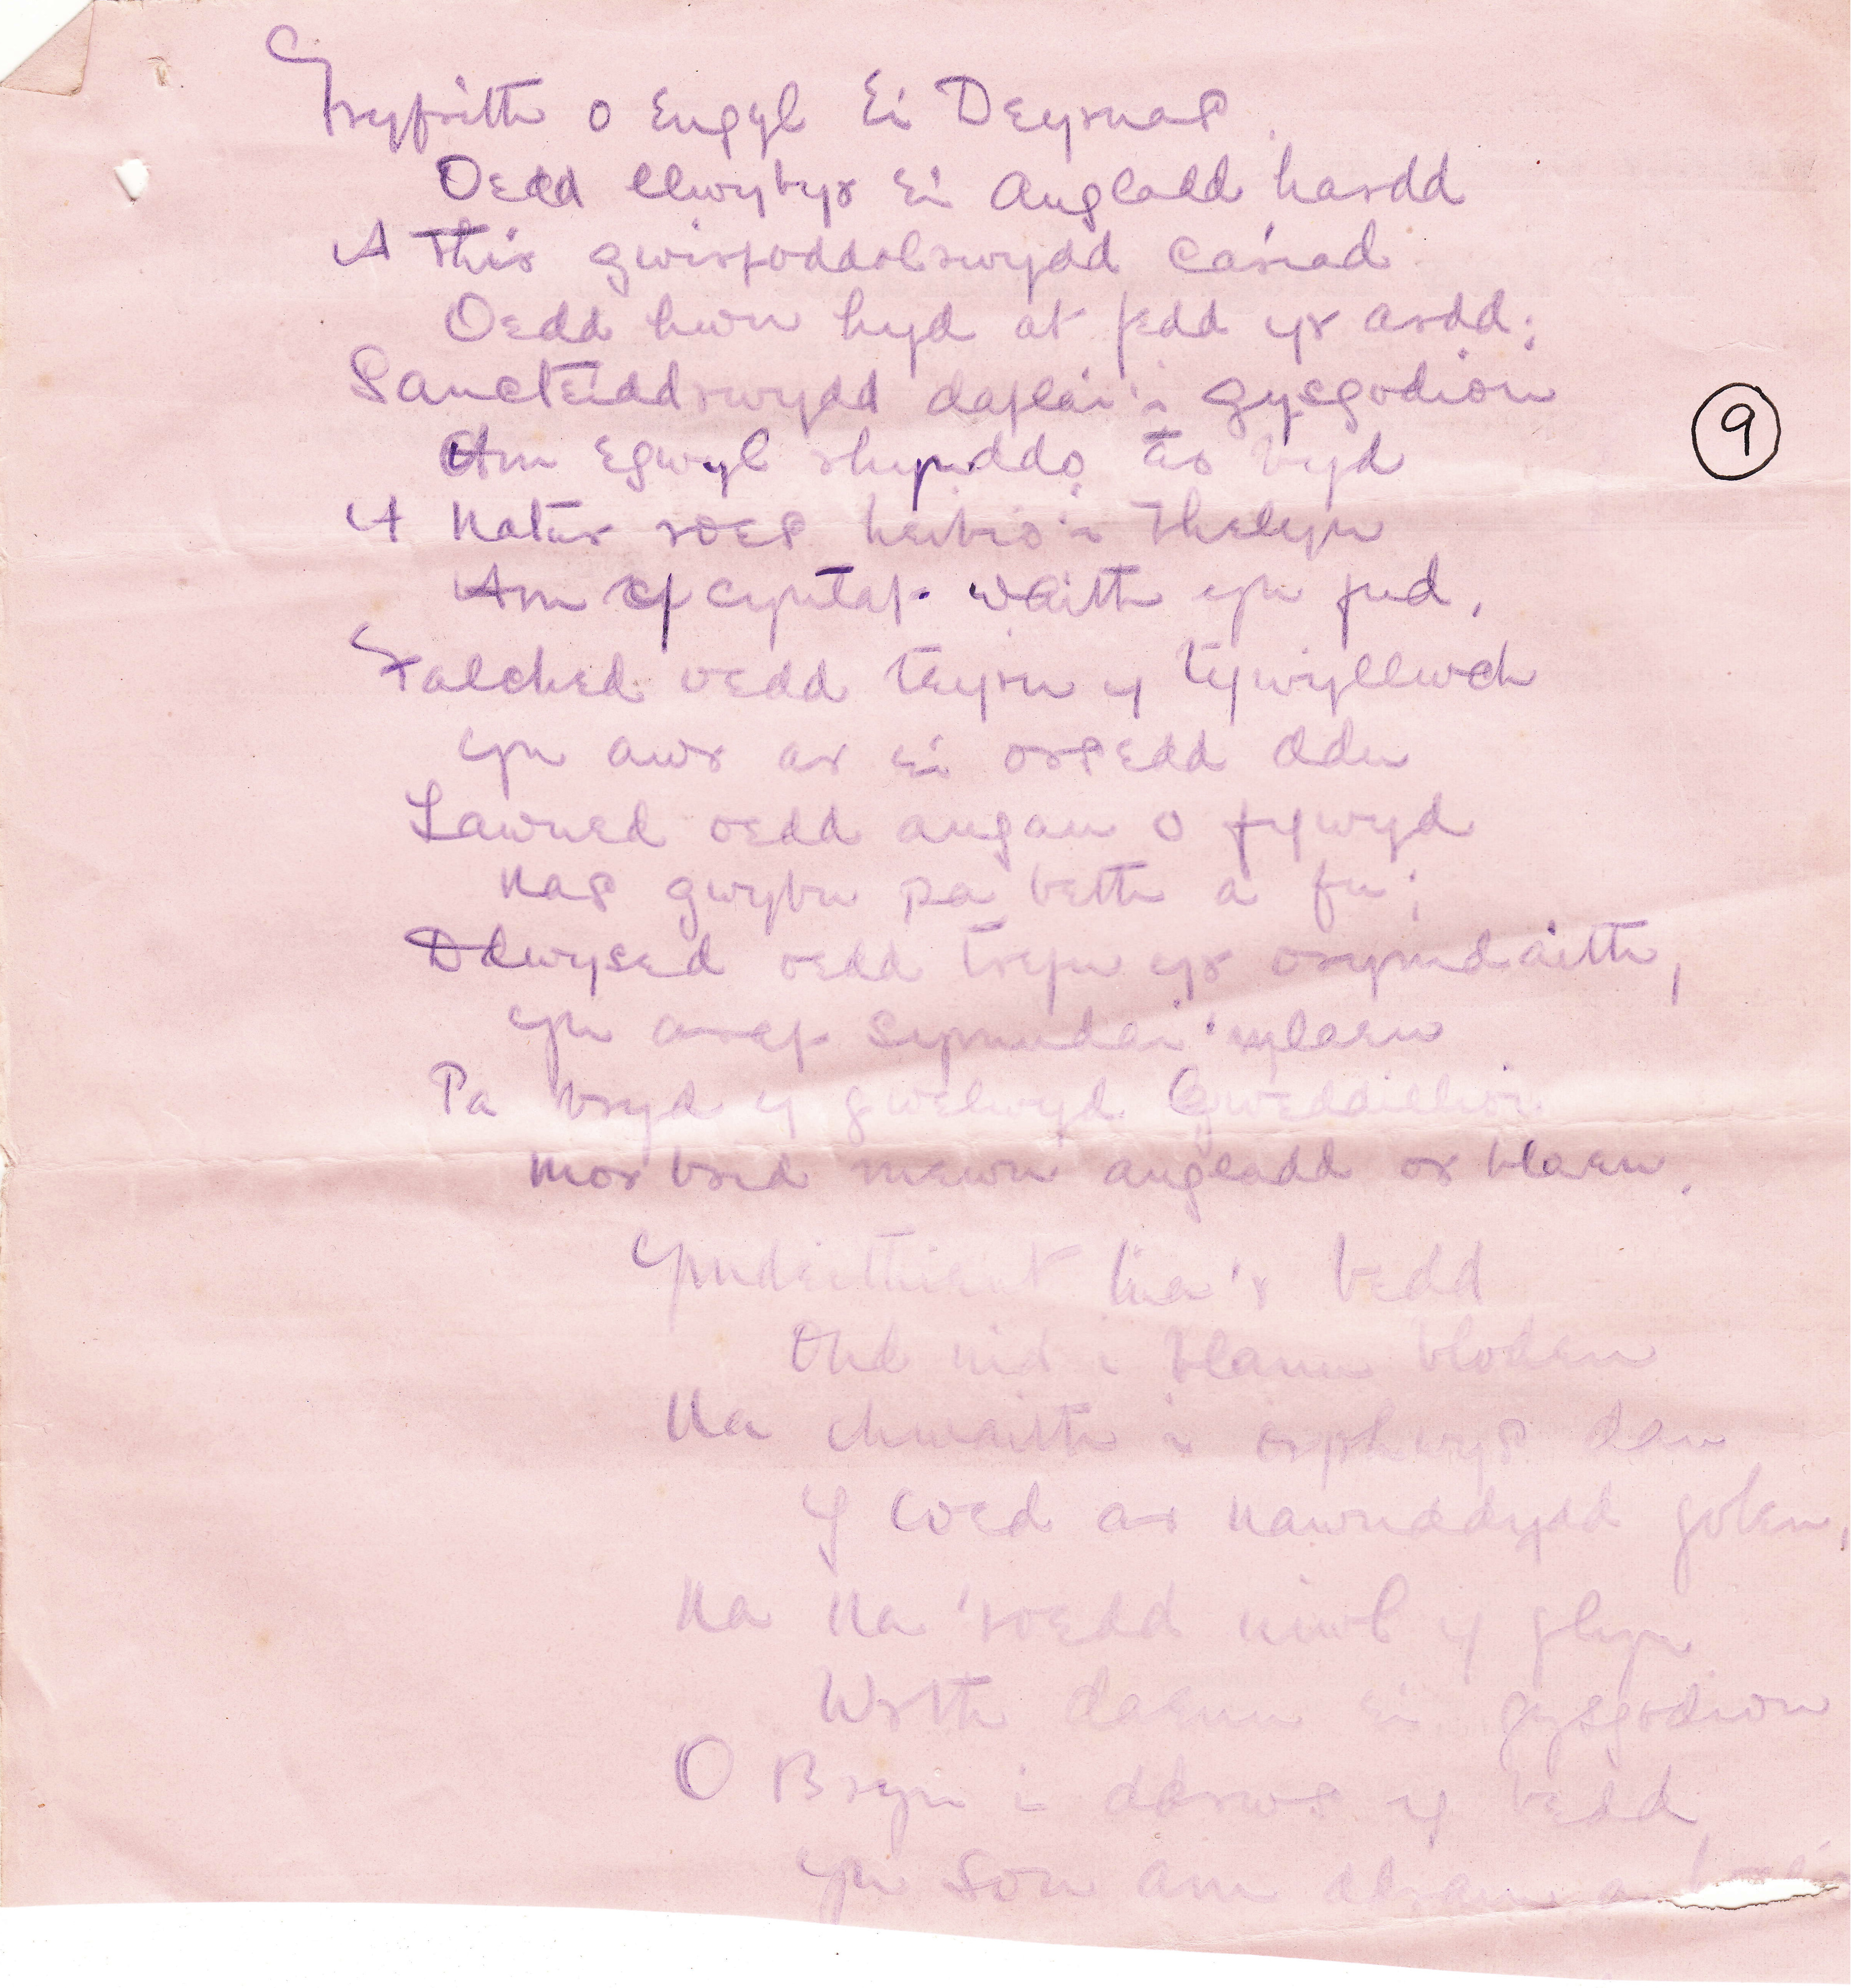 Fryfrith o Engyl Ei Deyrnas
Oedd llwybyr Ei Angladd hardd
A Thir gwirfoddolrwydd Cariad
Oedd hwn hyd at fedd yr ardd;
Sancteiddrwydd daflai'i gysgodion
Am egwyl rhyngddo a'r byd
A Natur roes heibio'i Thelyn
Am y cyntaf waith yn fud,
Falched oedd teyrn y tywyllwch
yn awr ar ei orsedd ddu
Lawned oedd angau o fywyd
Nas gwybu pa beth a fu;
Ddwysed oedd trefn yr orymdaith,
yn araf symudai 'mlaen
Pa bryd y gwelwyd Gweddillion
Mor brid mewn angladd o'r blaen.
Ymdeithient tua'r bedd
Ond nid i blannu blodau
Na chwaith i orphwys dan
Y coed ar nawnddydd golau,
Na Na 'roedd niwl y glyn
Wrth daenu ei gysgodion
O Bryn i ddrws y bedd
yn son am
9